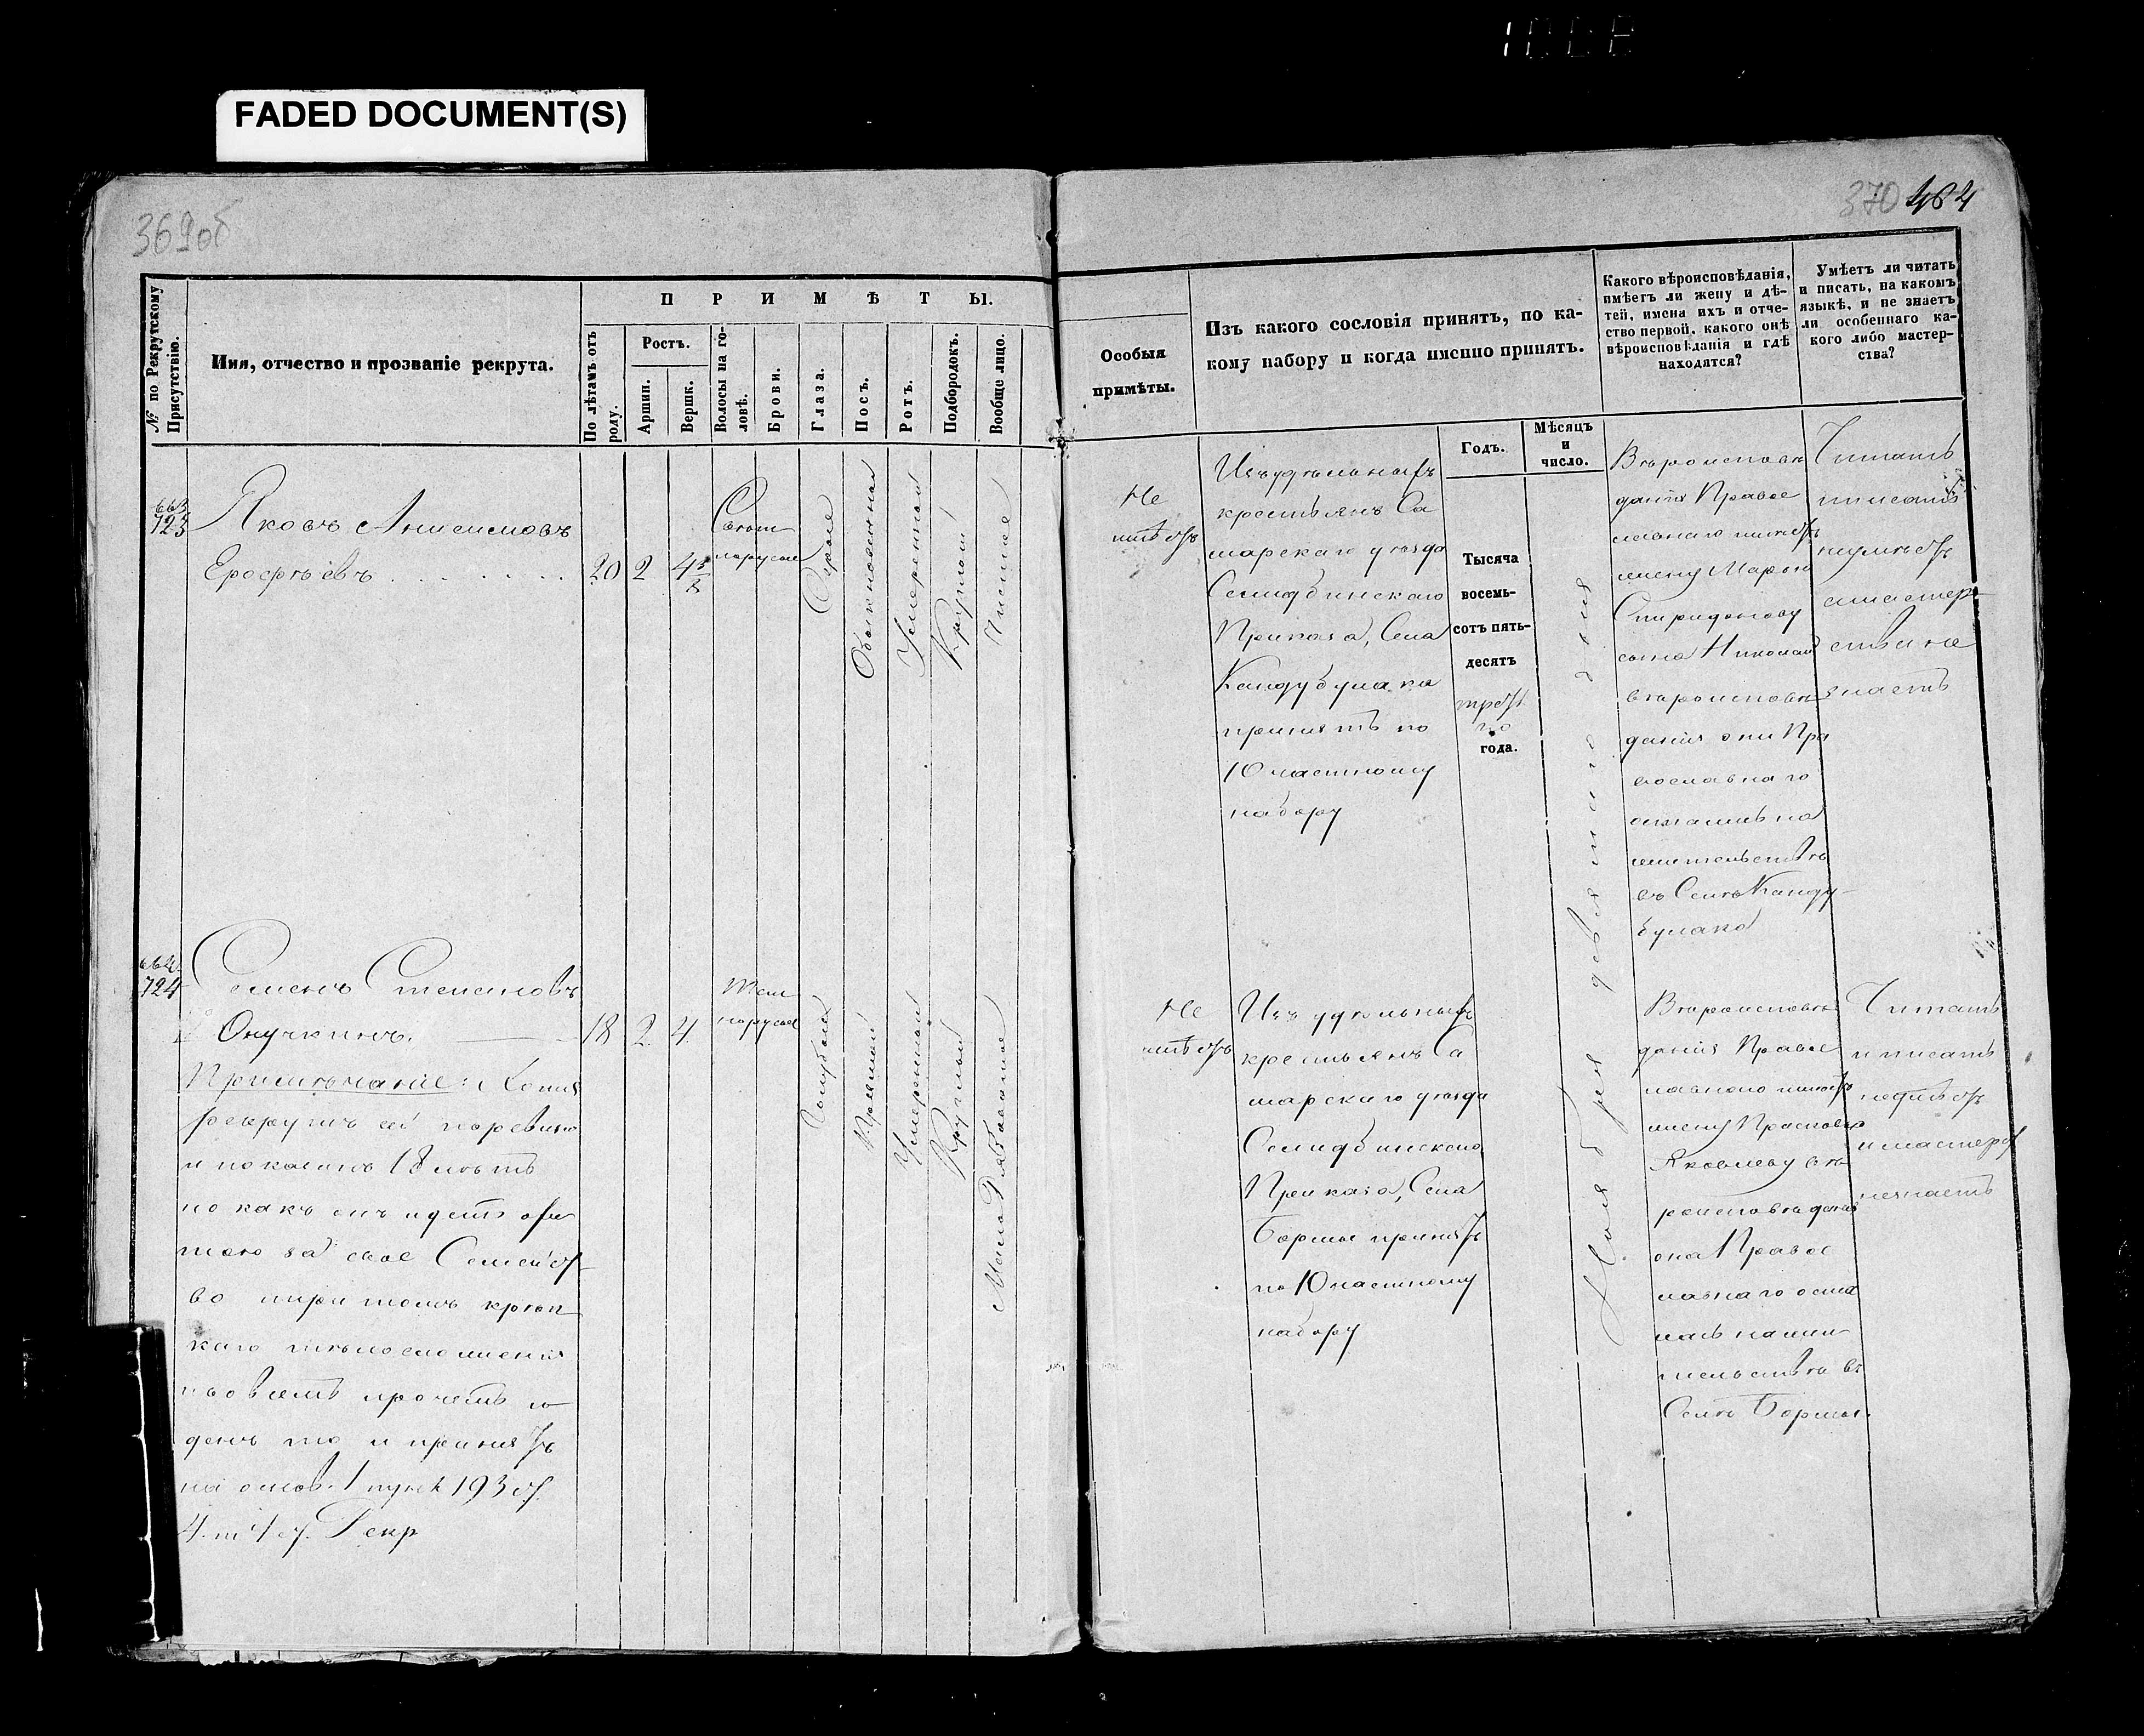 FADED DOCUMENT(S)
369об
370 464
№ по Рекрутскому
Присутствію.
Имя, отчество и прозваніе рекрута.
ПРИМѢТЫ.
По лѣтамъ отъ
роду.
Ростъ.
Аршин.
Вершк.
Волосы на го-
ловѣ.
Брови.
Глаза.
Носъ.
Ротъ.
Подбородокъ.
Вообще лицо.
Особыя
примѣты.
Изъ какого сословія принятъ, по ка-
кому набору и когда именно принятъ.
Годъ.
Мѣсяцъ
и
число.
Какого вѣроисповѣданія,
имѣетъ ли жену и дѣ-
тей, имена ихъ и отче-
ство первой, какого онѣ
вѣроисповѣданія и гдѣ
находятся?
Умѣетъ ли читать
и писать, на какомъ
языкѣ, и не знаетъ
ли особеннаго ка-
кого либо мастер-
ства?
663
723
Яковъ Анисимовъ
Ерофѣевъ
20
2
4 5/8
Свѣт
лорусые
Сѣрые
Обыкновенный
Умеренный
Круглый
Чистое
Не
имѣетъ
Изъ удѣльныхъ
крестьянъ Са
марскаго уѣзда
Приказа, Села
Кандубулака
принятъ по
10 частному
набору
Тысяча
восемь-
сотъ пять-
десятъ
треть
го
года.
Ноября девятаго дня
Вѣроисповѣ
данія Правос
лавнаго имѣетъ
жену Марью
Спиридонову
сына Николая
вѣроисповѣ
данія они Пра
вославнаго
остались на
жительствѣ
въ Селѣ Канду-
булакѣ
Читать
писать
неумѣетъ
и мастер
ства не
знаетъ
664
724
Семенъ Степановъ
Онучкинъ.
18
2
4
Тем
норусые
Голубые
Прямой
Умеренный
Круглый
Мало Рябоватое
Примѣчаніе: Хотя
рекрутъ сей по ревизіи
и показанъ 18 лѣтъ
но какъ онъ идетъ охо
тою за свое Семейст
во и притомъ крѣп
каго тѣлосложенія
и во всемъ прочемъ го
денъ то и принятъ
на основ. 1 пунк 193 ст.
4. т 1 у. Рекр
Не
имѣетъ
Изъ удѣльныхъ
крестьянъ Са
марскаго уѣзда
Приказа, Села
Бормы принятъ
по 10 частному
набору
Вѣроисповѣ
данія Правос
лавнаго имѣетъ
жену Прасковью
Яковлеву вѣ
роисповѣданія
она Правос
лавнаго оста
лась на жи
тельствѣ въ
Селѣ Бормы.
Читать
и писать
и мастерст
незнаетъ